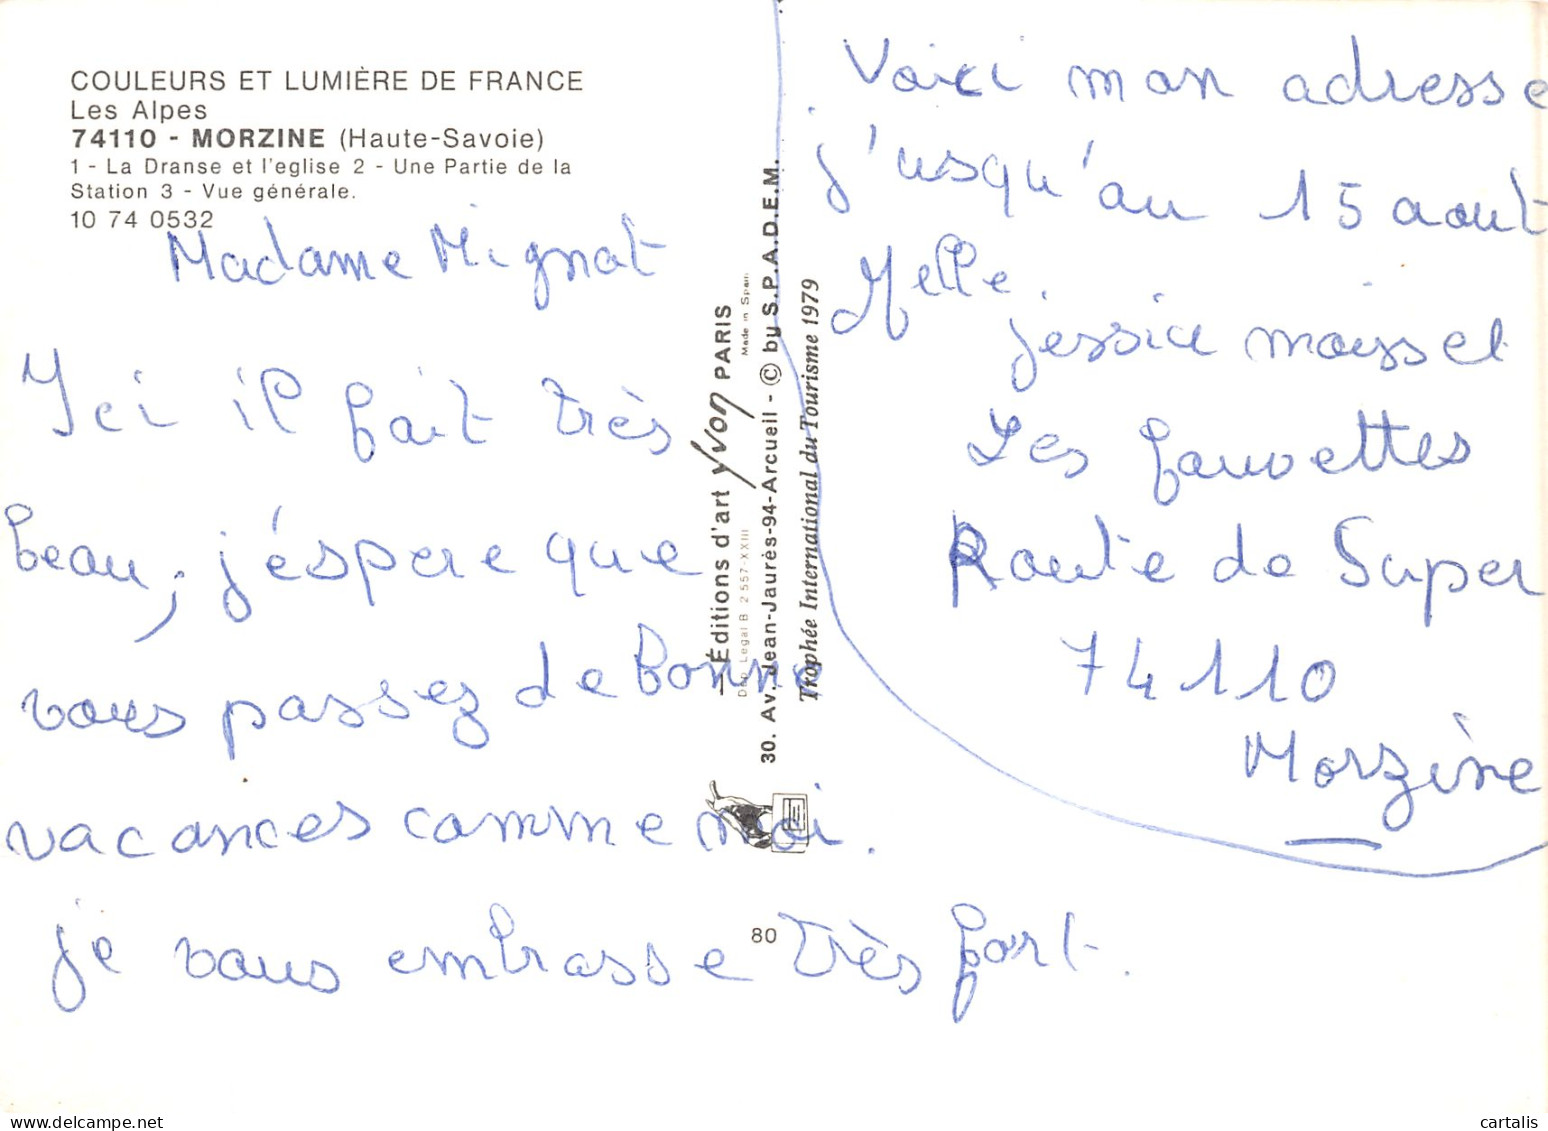 COULEURS ET LUMIÈRE DE FRANCE
Les Alpes
74110 - MORZINE (Haute-Savoie)
1 - La Dranse et l'eglise 2 - Une Partie de la
Station 3 - Vue générale.
10 74 0532
Madame Mignat
Ici il fait très
beau, j'éspere que
vous passez de bonne
vacances comme moi.
je vous embrasse très fort.
Éditions d'art Yvon PARIS
Made in Spain
Dep. Legal B 2 557-XXIII
30. Av. Jean-Jaurès-94-Arcueil - © by S.P.A.D.E.M.
Trophée International du Tourisme 1979
80
Voici mon adresse
j'usqu'au 15 aout
Melle.
jessica moussel
Les fauvettes
Route de Super
74110
Morzine
cartalis